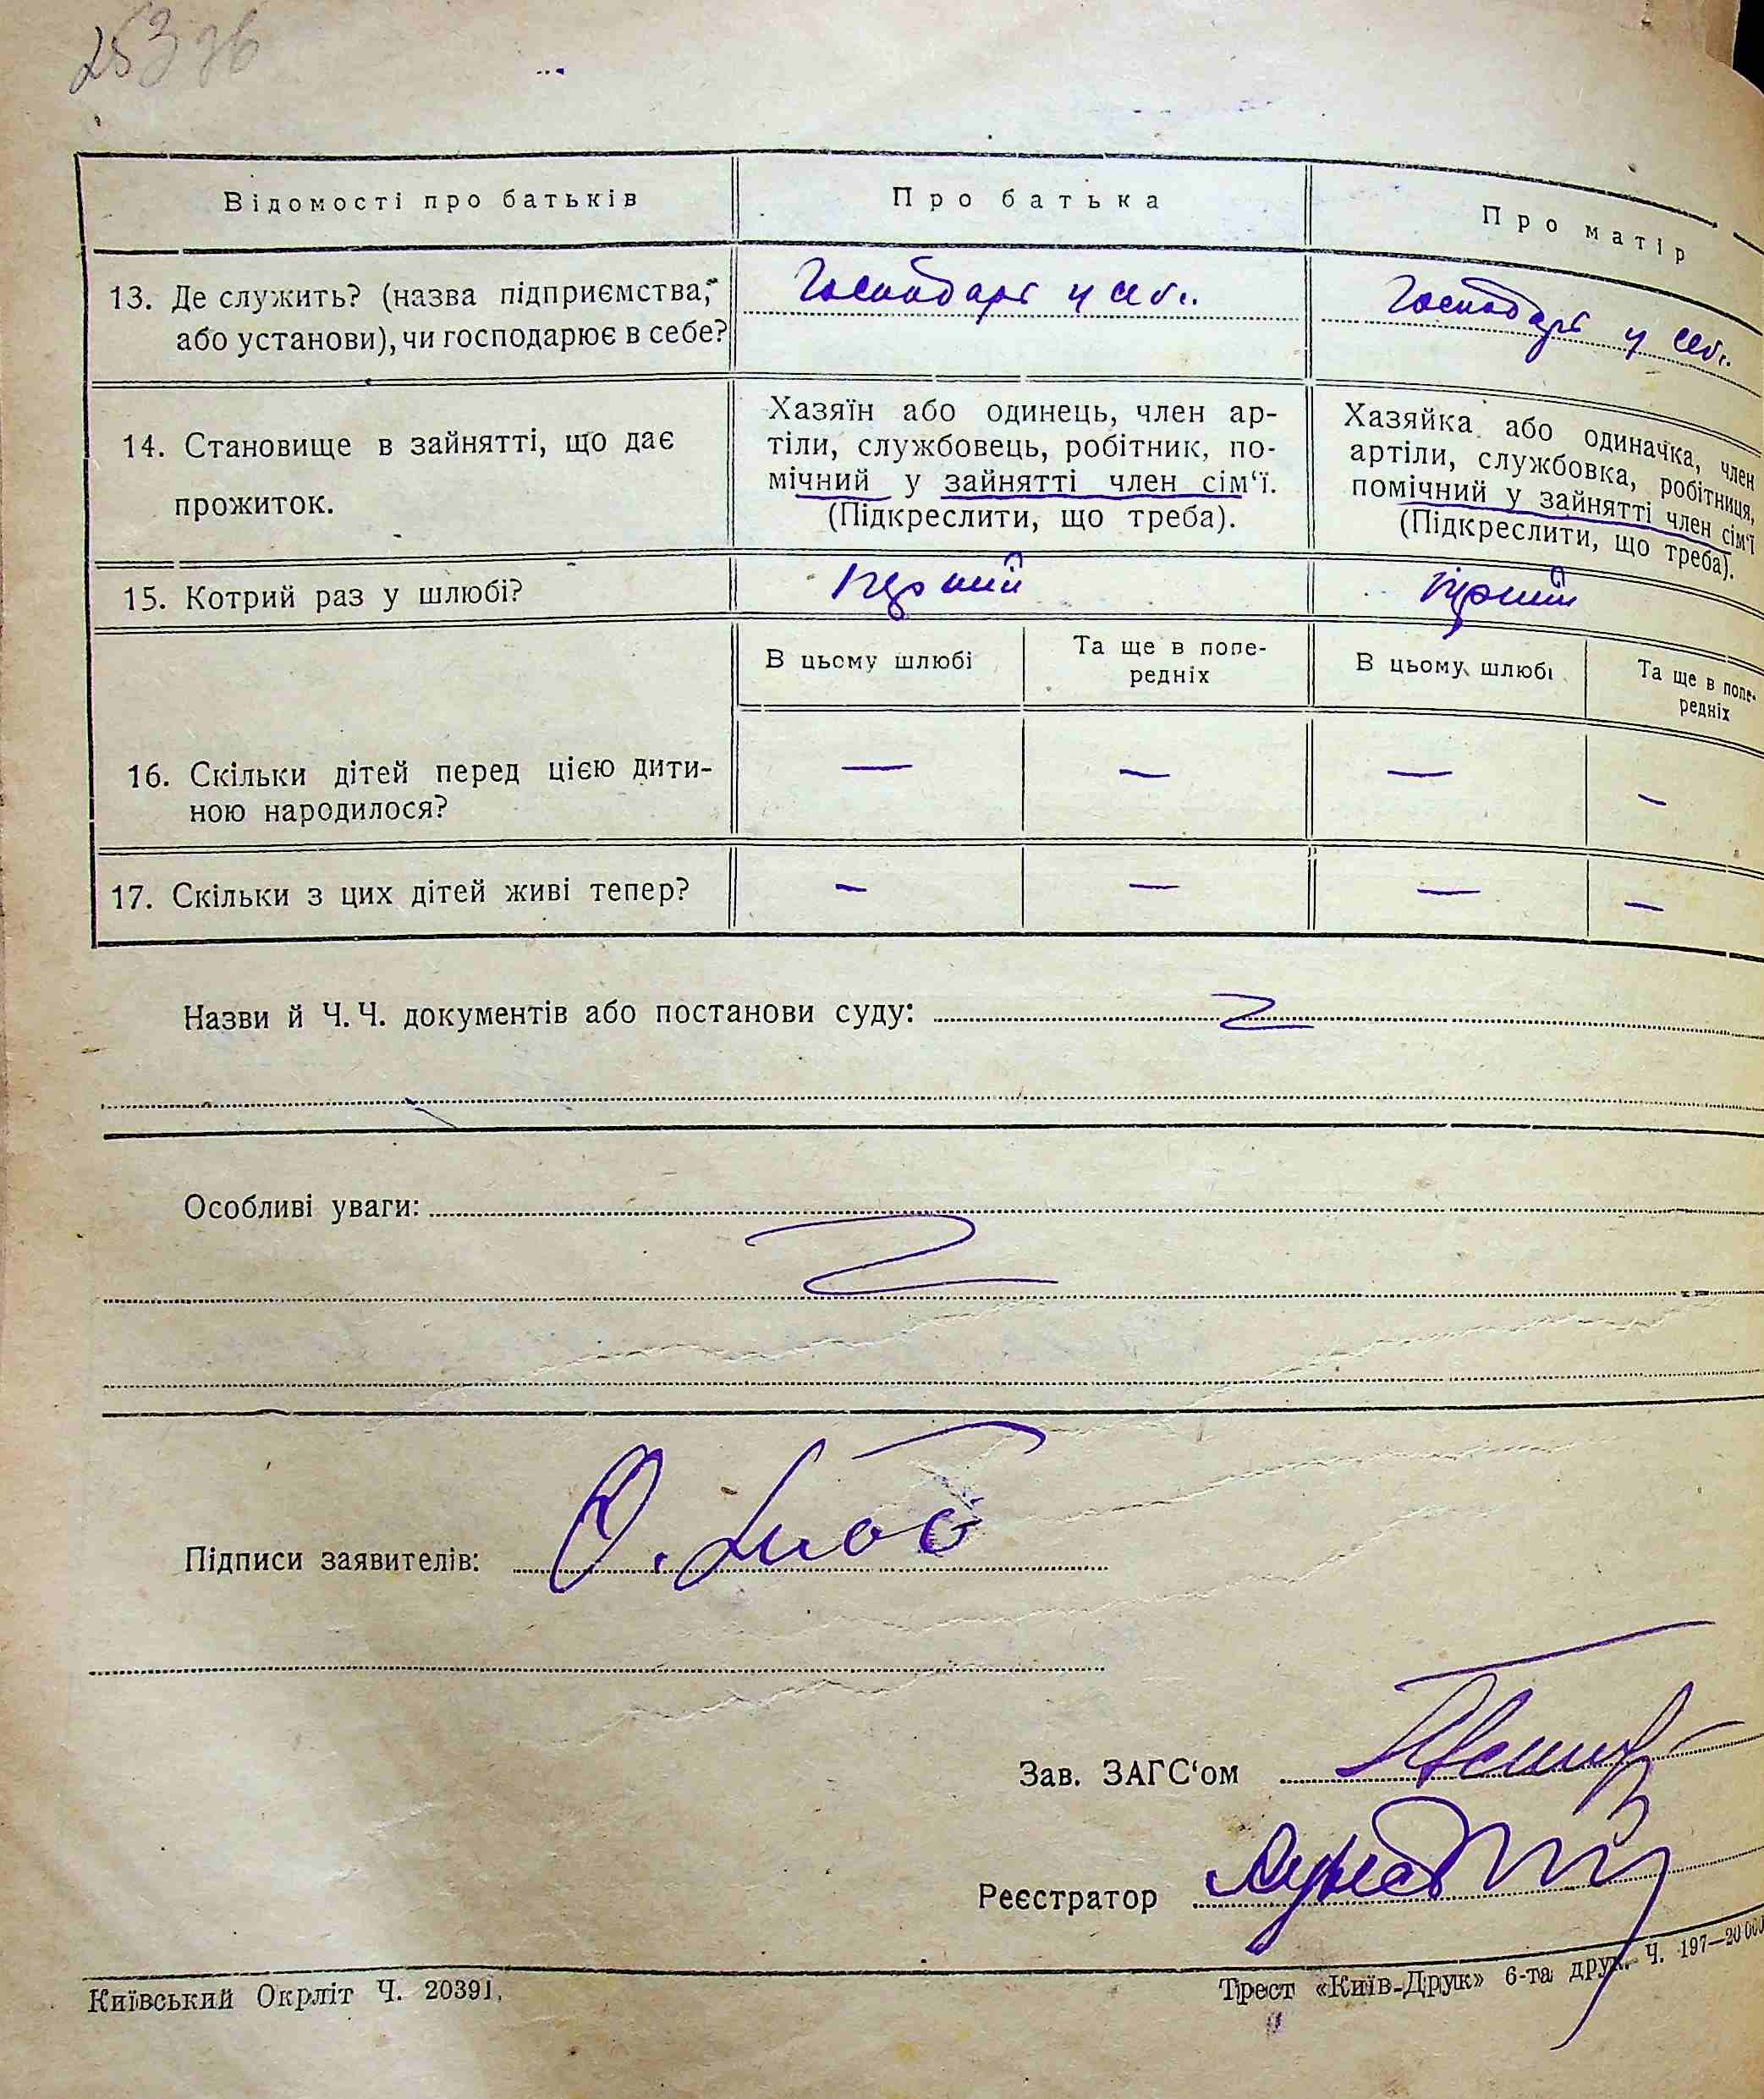 253 зв
Відомості про батьків
Про батька
Про матір
13. Де служить? (назва підприємства,
або установи), чи господарює в себе?
Господарг у себ.
Господарг у себ.
14. Становище в зайнятті, що дає
прожиток.
Хазяїн або одинець, член ар-
тіли, службовець, робітник, по-
мічний у зайнятті член сім‘ї.
(Підкреслити, що треба).
Хазяйка або одиначка, член
артіли, службовка, робітниця,
помічний у зайнятті член сім‘ї
(Підкреслити, що треба).
15. Котрий раз у шлюбі?
перший
перший
В цьому шлюбі
Та ще в попе-
редніх
В цьому шлюбі
Та ще в попе-
редніх
16. Скільки дітей перед цією дити-
ною народилося?
— — — —
17. Скільки з цих дітей живі тепер?
— — — —
Назви й Ч. Ч. документів або постанови суду:
Особливі уваги:
Підписи заявителів:
Зав. ЗАГС‘ом
Реєстратор
Київський Окрліт Ч. 20391.
Трест «Київ-Друк» 6-та друк. Ч. 197—20000